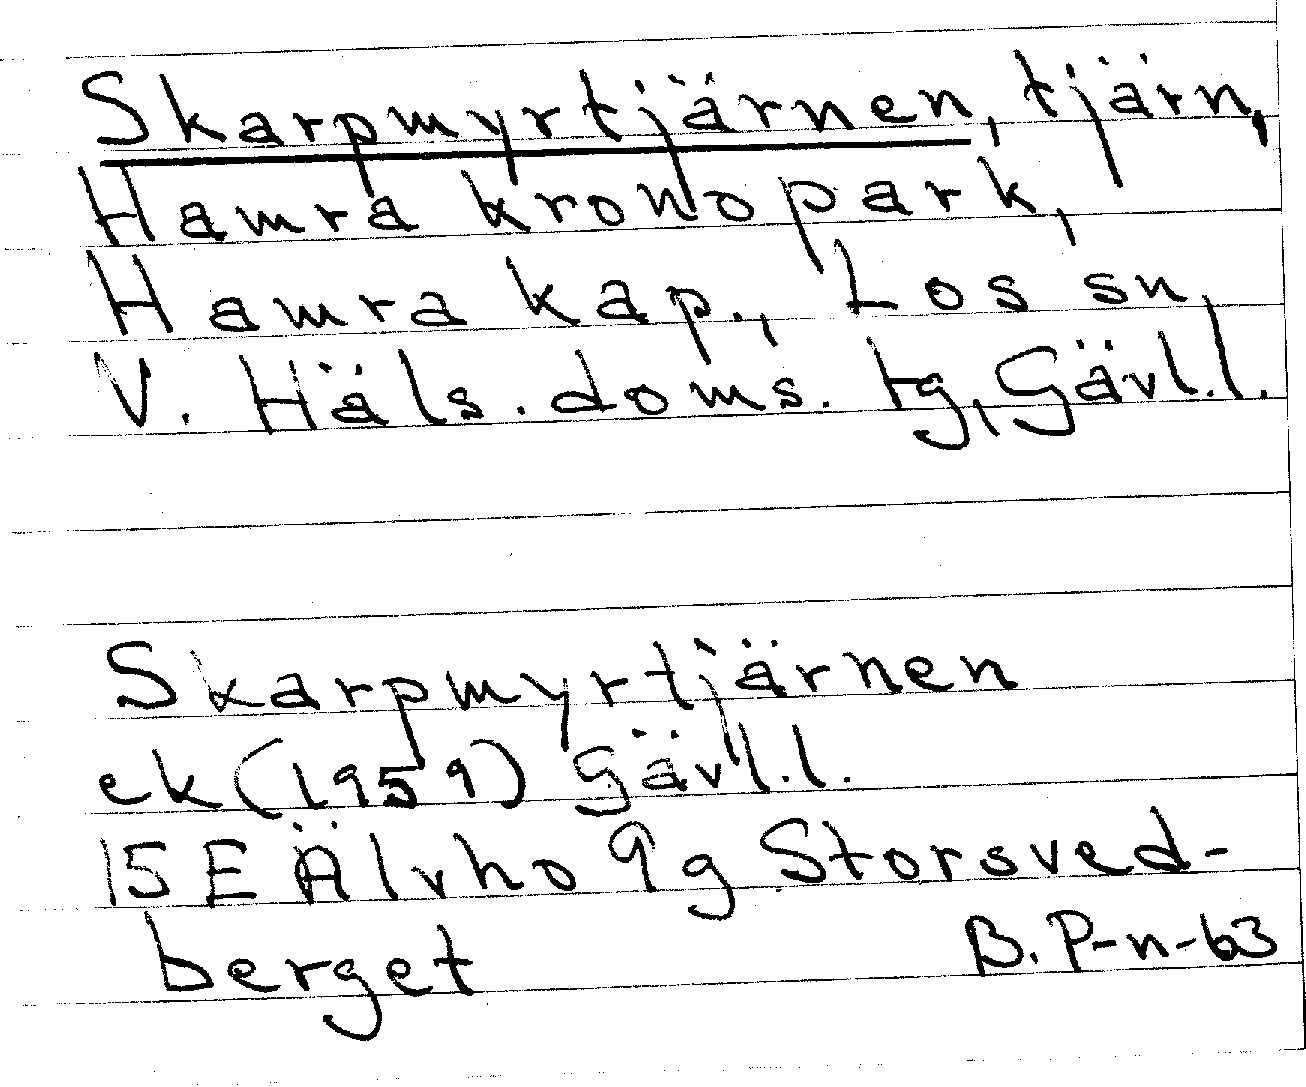 Skarpmyrtjärnen, tjärn,
Hamra kronopark,
Hamra kap., Los sn,
V. Häls. doms. tg, Gävl.l.
Skarpmyrtjärnen
ek (1959) Gävl.l.
15 E Älvho 9g Storsved-
berget B. P-n-63